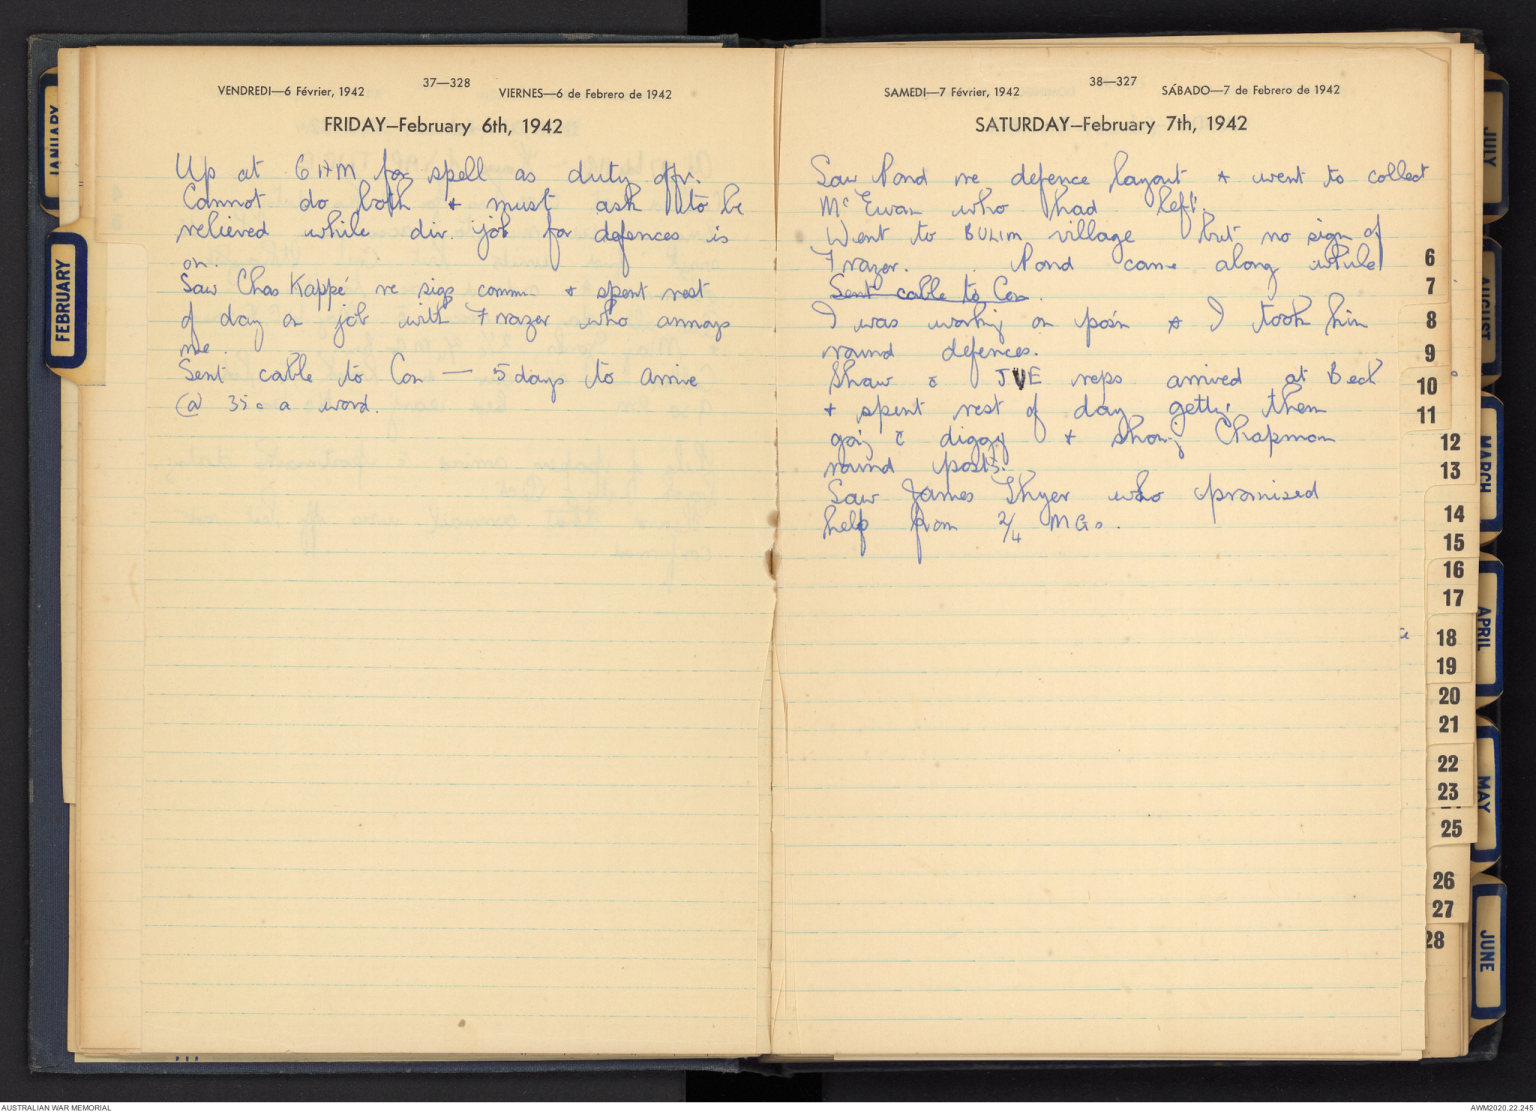 JANUARY
FEBRUARY
37—328
VENDREDI—6 Février, 1942
VIERNES—6 de Febrero de 1942
FRIDAY—February 6th, 1942
Up at 6 AM for spell as duty offr.
Cannot do both + must ask to be
relieved while div. job for defences is
on.
Saw Chas Kappé re sigs comm + spent rest
of day on job with Frazer who annoys
me.
Sent cable to Con — 5 days to arrive
@ 35c a word.
38—327
SAMEDI—7 Février, 1942
SÁBADO—7 de Febrero de 1942
SATURDAY—February 7th, 1942
Saw Pond re defence layout + went to collect
McEwan who had left.
Went to BULIM village but no sign of
Frazer. Pond came along while
Sent cable to Con.
I was working on posn + I took him
round defences.
Shaw & JVE reps arrived at Beck
+ spent rest of day getting them
going c digging + showing Chapman
round posts.
Saw James Thyer who promised
help from 2/4 MGs.
6
7
8
9
10
11
12
13
14
15
16
17
18
19
20
21
22
23
25
26
27
28
JULY
AUGUST
MARCH
APRIL
MAY
JUNE
AUSTRALIAN WAR MEMORIAL
AWM2020.22.245